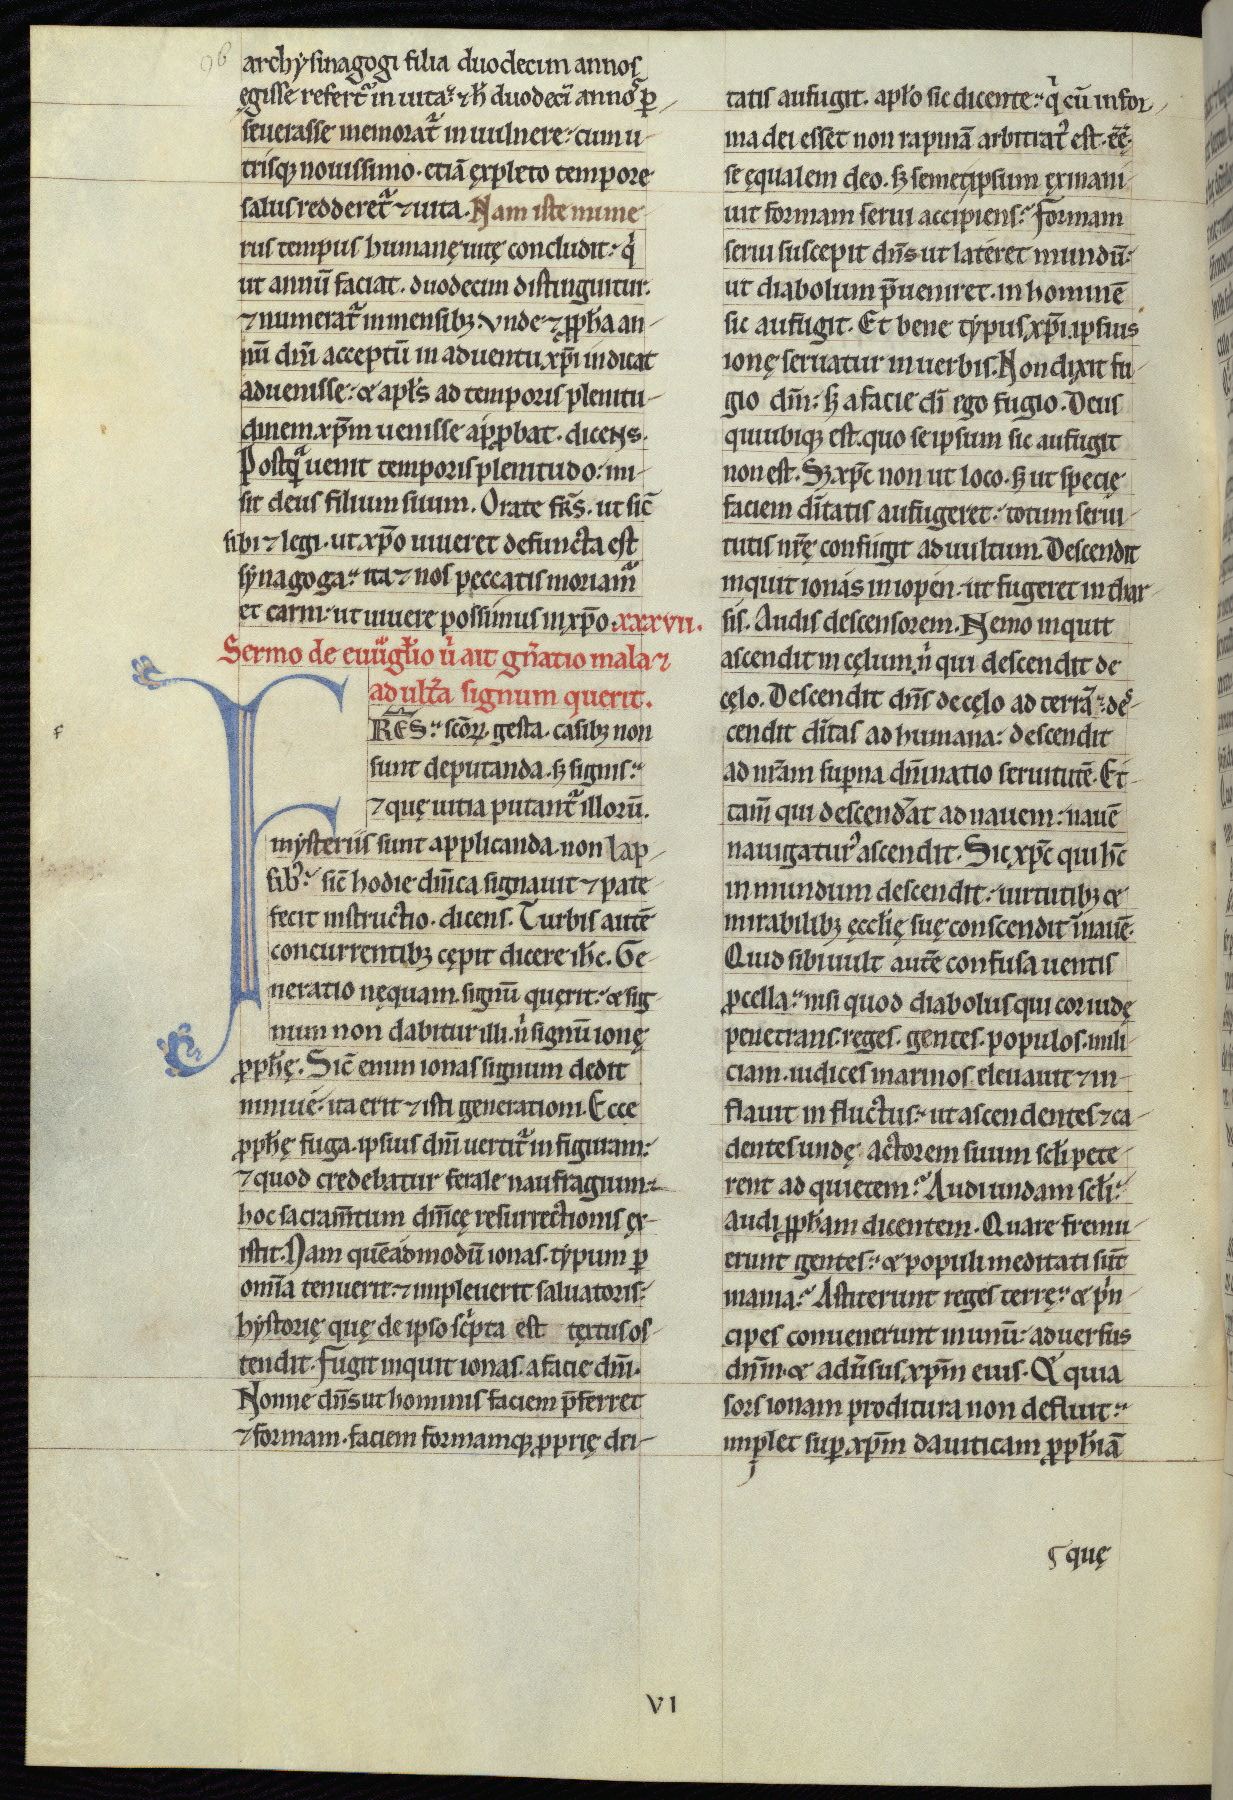 archysinagogi filia duodecim annos
ęgisse refert᷑ in uita· ⁊ h̄ duodecī anno᷒ ꝑ
seuerasse memorat᷑ in uulnere· cum u
trisq; nouissimo· etiā ęxpleto tempore
salus redderet᷑ ⁊ uita. Nam iste nume
rus tempus humanę uitę concludit· q̇
ut annū faciat. duodecim distinguitur.
⁊ numerat᷑ in mensib; vnde ⁊ ꝓph̄a an
nū dn̄i acceptū in aduentu xp̄i indicat
aduenisse· & apl̄s ad temporis plenitu
dinem xp̄m uenisse aꝓpbat· dicens.
Postq̄ uenit temporis plenitudo· mi
sit deus filium suum. Orate fr̄s. ut sic̄
sibi ⁊ legi· ut xp̄o uiueret defuncta est
synagoga· ita ⁊ nos peccatis moriam᷑
et carni· ut uiuere possimus in xp̄o. xxxvii.
Sermo de euu̅gl̄io u̇ ait gn̄atio mala ⁊
adult̄a signum querit.
FRES· sc̄oꝝ gesta. casib; non
sunt deputanda· ſ; signis·
⁊ quę uitia putant᷑ illorū.
mysteriis sunt applicanda· non lap
sib᷒· sic̄ hodie dn̄ica signauit ⁊ pate
fecit instructio· dicens. Turbis autē
concurrentib; cępit dicere ih̄c. Ge
neratio nęquam signū quęrit· & sig
num non dabitur illi· ṅ signū ionę
ꝓph̄ę. Sic̄ enim ionas signum dedit
niniuē· ita erit ⁊ isti generationi. Ecce
ꝓph̄ę fuga· ipsius dn̄i uertit᷑ in figuram·
⁊ quod credebatur ferale naufragium·
hoc sacram̄tum dn̄icę resurrectionis ęx
istit. Nam quēadmodū ionas· typum ꝑ
omīa tenuerit· ⁊ impleuerit saluatoris·
hystorię quę de ipso sċpta est tęxtus os
tendit. Fugit inquit ionas a facie dn̄i.
Nonne dn̄s ut hominis faciem p̄ferret
⁊ formam· faciem formamq; ꝓprię dei
tatis aufugit. apl̄o sic dicente· q̇ cū in for
ma dei esset non rapinā arbitrat᷒ est· eē
se ęqualem deo. ſ; semetipsum ęxinani
uit formam serui accipiens· Formam
serui suscepit dn̄s ut lateret mundū·
ut diabolum p̄ueniret· in hominē
sic aufugit. Et bene typus xp̄i ipsius
ionę seruatur in uerbis. Non dixit fu
gio dn̄m· ſ; a facie dn̄i ego fugio. Deus
qui ubiq; est. quo se ipsum sic aufugit
non est. S; xp̄c non ut loco. ſ; ut specię
faciem dn̄itatis aufugeret· totum serui
tutis nr̄ę confugit ad uultum. Descendit
inquit ionas in iopen· ut fugeret in thar
sis. Audis descensorem. Nemo inquit
ascendit in cęlum ṅ qui descendit de
cęlo. Descendit dn̄s de cęlo ad terrā· des
cendit dn̄itas ad humana· descendit
ad nr̄am suꝑna dn̄inatio seruitutē. Et
tam̄ qui descend̄at ad nauem· nauē
nauigatur᷒ ascendit. Sic xp̄c qui hc̄
in mundum descendit· uirtutib; &
mirabilib; ęccl̄ię suę conscendit ī nauē.
Quid sibi uult autē confusa uentis
ꝓcella· nisi quod diabolus qui cor iudę
penetrans· reges· gentes· populos· mili
ciam· iudices marinos eleuauit ⁊ in
flauit in fluctus· ut ascendentes ⁊ ca
dentes undę actorem suum sc̄li pete
rent ad quietem· Audi undam sc̄li·
audi ꝓph̄am dicentem. Quare fremu
erunt gentes· & populi meditati sūt
inania· Astiterunt reges terrę· & pn̄
cipes conuenerunt in unū· aduersus
dn̄m· & adūsus xp̄m eius. Q̇ quia
sors ionam proditura non defluit·
implet suꝑ xp̄m dauiticam ꝓph̄iā
quę
VI